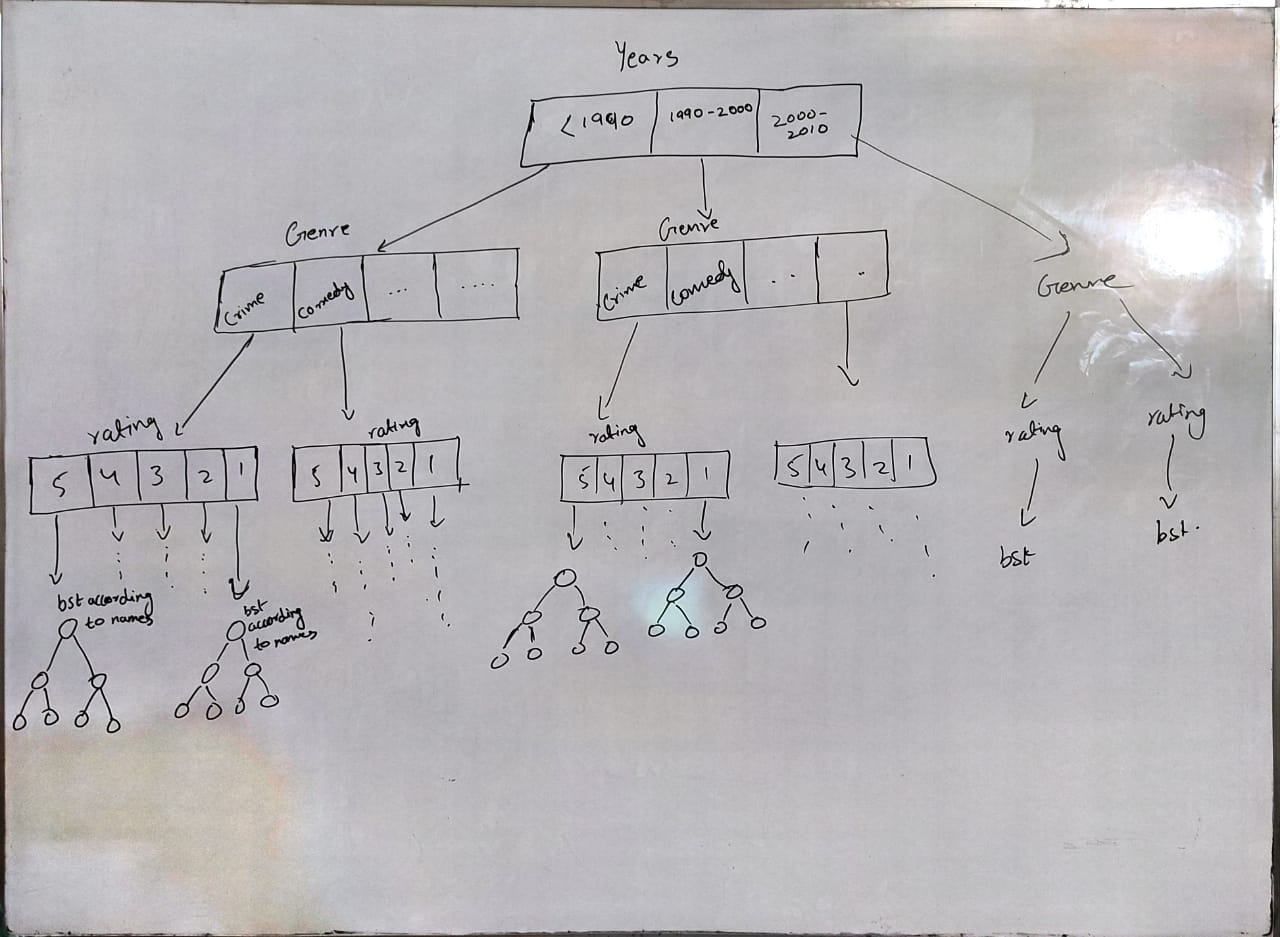 Years
<1990
1990-2000
2000-
2010
Genre
Crime
comedy
...
....
Genre
Crime
comedy
..
.
Genre
rating
5 4 3 2 1
rating
5 4 3 2 1
rating
5 4 3 2 1
5 4 3 2 1
rating
rating
bst according
to names
bst
according
to names
bst
bst.